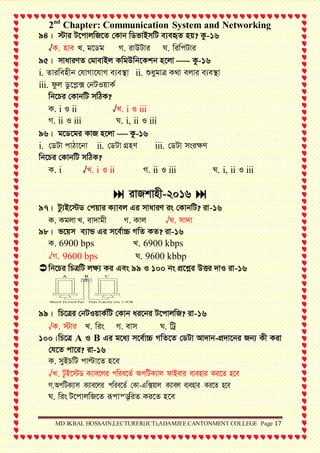 2nd Chapter: Communication System and Networking
৯৪। স্টার টপোলজিতে কোন ডিভাইসটি ব্যবহৃত হয়? কু-১৬
√ক. হাব খ. মডেম গ. রাউটার ঘ. রিপিটার
৯৫। সাধারণত মোবাইল কমিউনিকেশন হলো ––– কু-১৬
i. তারবিহীন যোগাযোগ ব্যবস্থা ii. শুধুমাত্র কথা বলার ব্যবস্থা
iii. ফুল ডুপ্লেক্স নেটওয়ার্ক
নিচের কোনটি সঠিক?
ক. i ও ii √খ. i ও iii
গ. ii ও iii ঘ. i, ii ও iii
৯৬। মডেমের কাজ হলো ––– কু-১৬
i. ডেটা পাঠানো ii. ডেটা গ্রহণ iii. ডেটা সংরক্ষণ
নিচের কোনটি সঠিক?
ক. i √খ. i ও ii গ. ii ও iii ঘ. i, ii ও iii
⏭ রাজশাহী-২০১৬ ⏭
৯৭। ট্যুইস্টেড পেয়ার ক্যাবল এর সাধারণ রং কোনটি? রা-১৬
ক. কমলা খ. বাদামী গ. কাল √ঘ. সাদা
৯৮। ভয়েস ব্যান্ড এর সর্বোচ্চ গতি কত? রা-১৬
ক. 6900 bps খ. 6900 kbps
√গ. 9600 bps ঘ. 9600 kbbp
➲নিচের চিত্রটি লক্ষ্য কর এবং ৯৯ ও ১০০ নং প্রশ্নের উত্তর দাও রা-১৬
A B C
৯৯। চিত্রের নেটওয়ার্কটি কোন ধরনের টপোলজি? রা-১৬
√ক. স্টার খ. রিং গ. বাস ঘ. ট্রি
১০০।চিত্রে A ও B এর মধ্যে সর্বোচ্চ গতিতে ডেটা আদান-প্রদানের জন্য কী করা
যেতে পারে? রা-১৬
ক. সুইচটি পাল্টাতে হবে
√খ. টুইস্টেড ক্যাবলের পরিবর্তে অপটিক্যাল ফাইবার ব্যবহার করতে হবে
গ.অপটিক্যাল ক্যাবলের পরিবর্তে কো-এক্সিয়াল ক্যাবল ব্যবহার করতে হবে
ঘ. রিং টপোলজিতে রূপান্তরিত করতে হবে
MD IKBAL HOSSAIN,LECTURER(ICT),ADAMJEE CANTONMENT COLLEGE Page 17